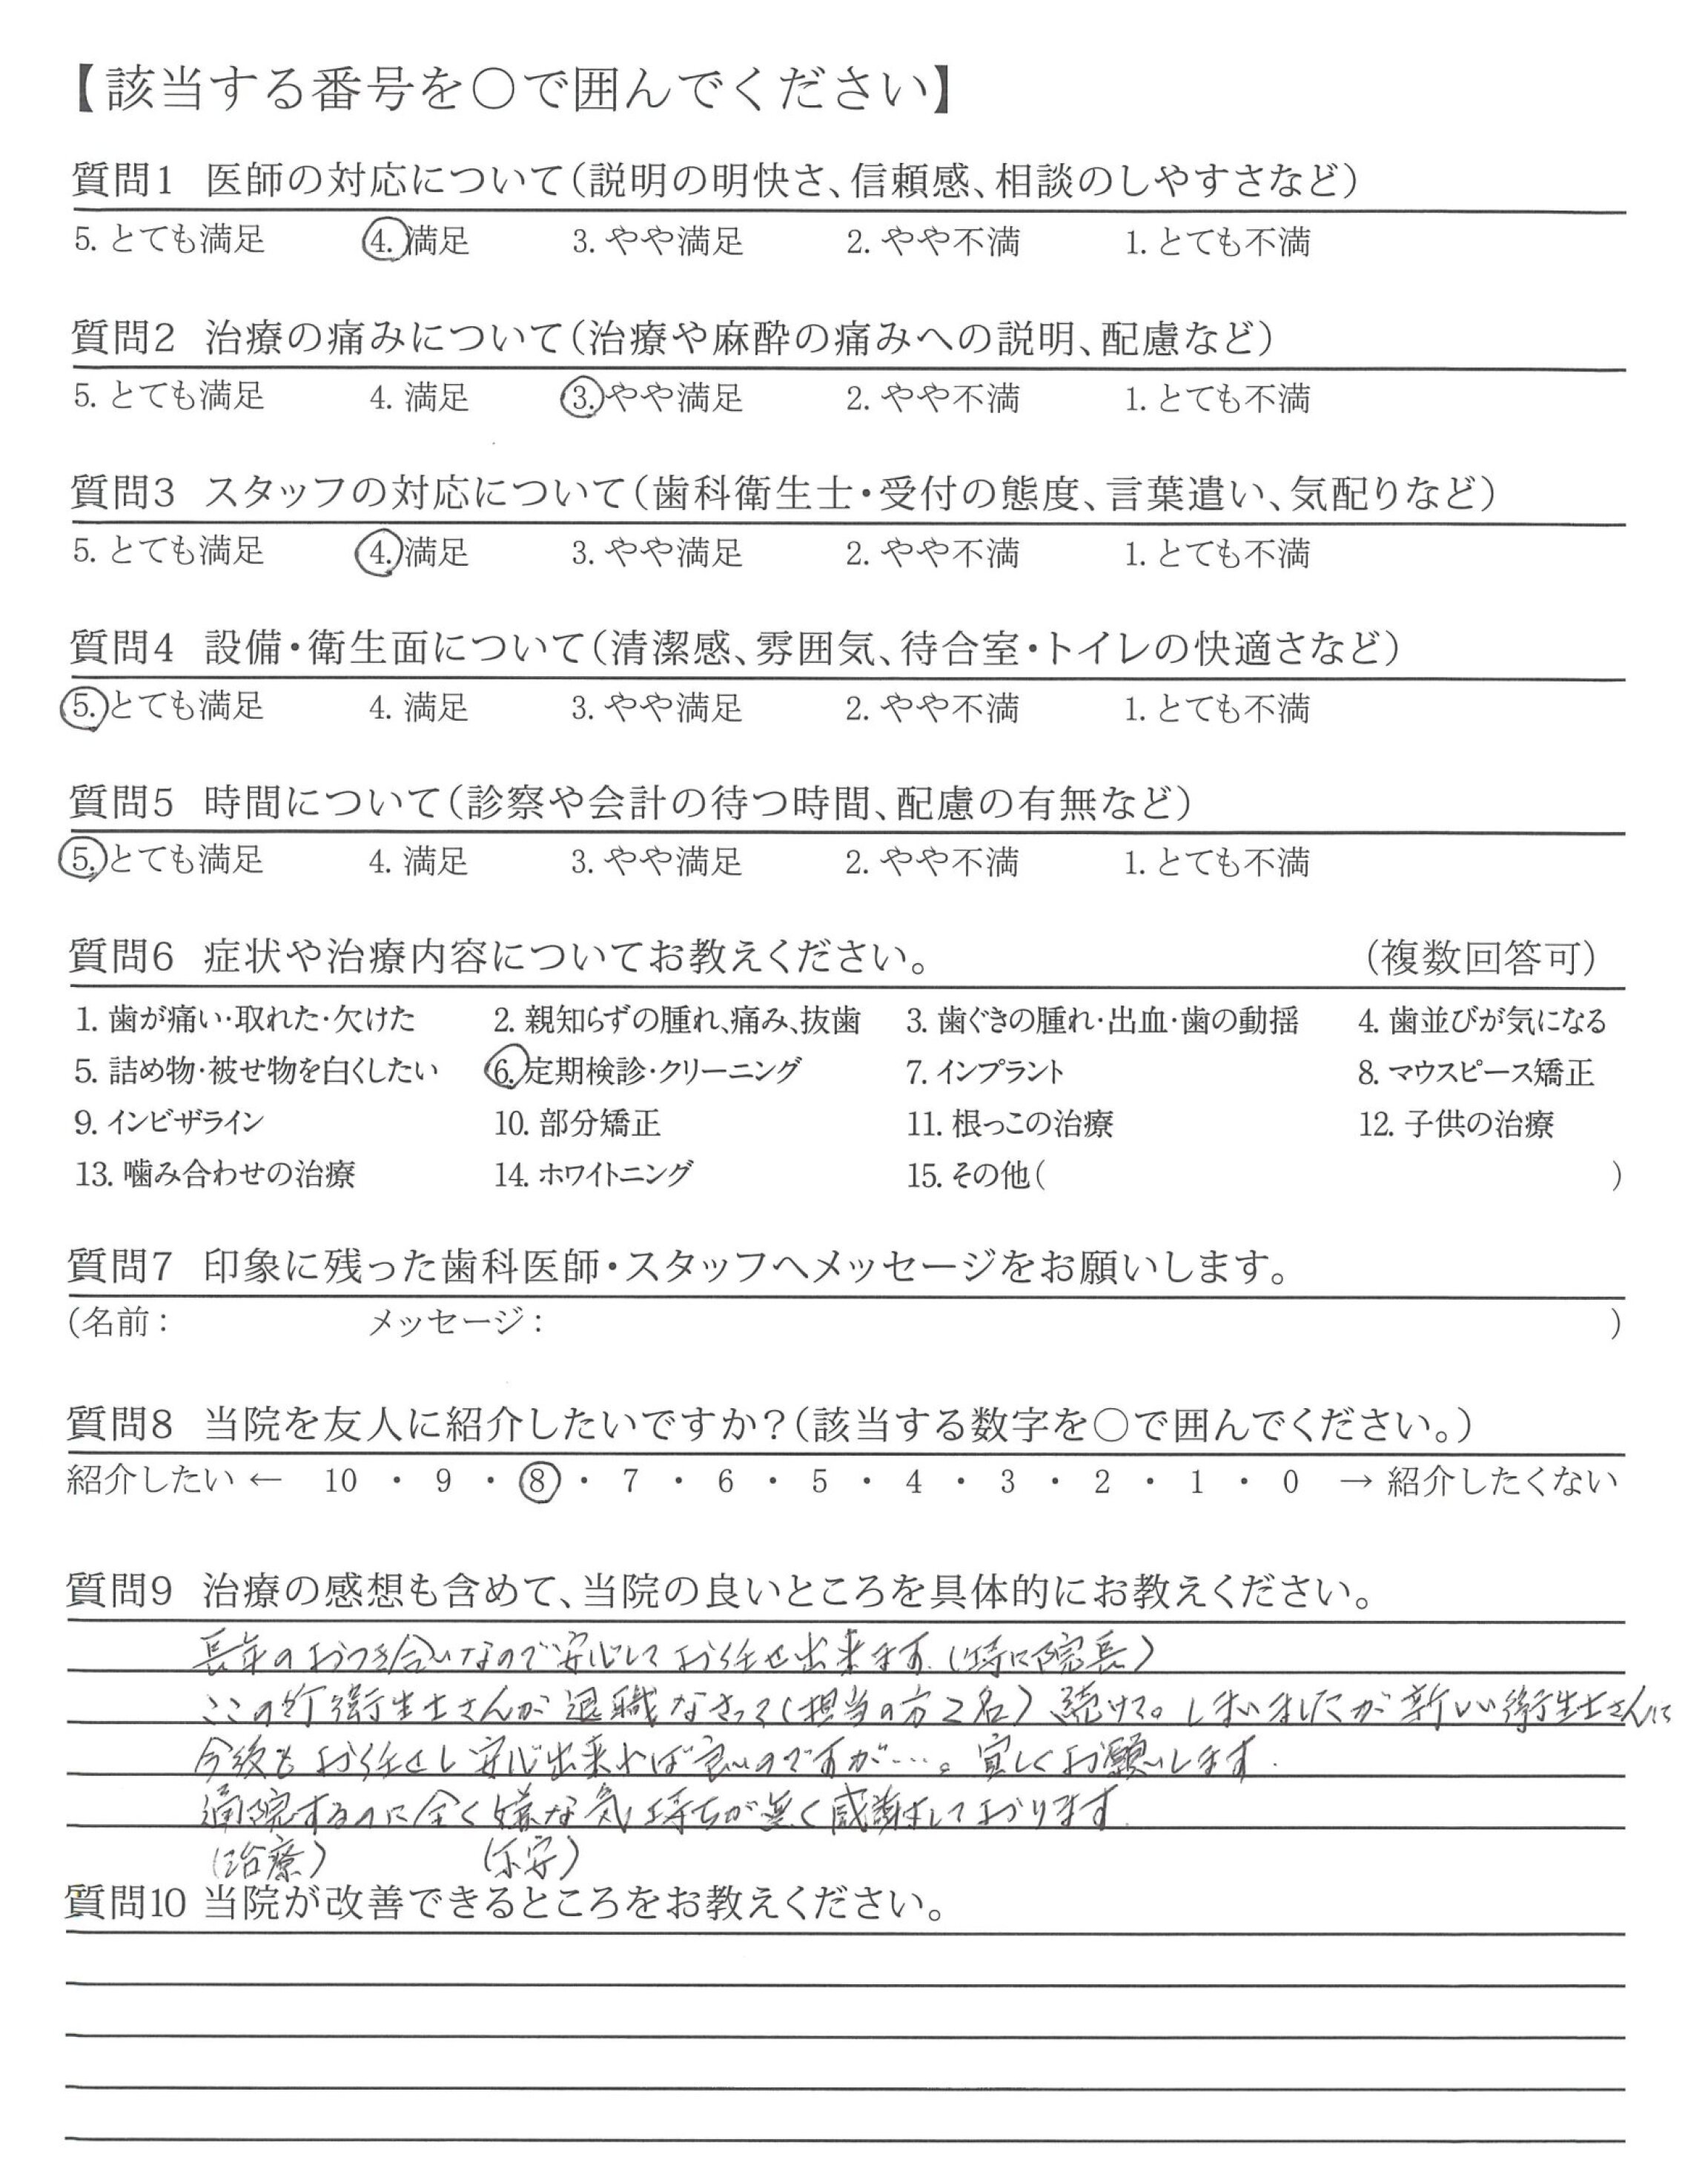 【該当する番号を○で囲んでください】
質問1 医師の対応について(説明の明快さ、信頼感、相談のしやすさなど)
5. とても満足 4. 満足 3. やや満足 2. やや不満 1. とても不満
質問2 治療の痛みについて(治療や麻酔の痛みへの説明、配慮など)
5. とても満足 4. 満足 3. やや満足 2. やや不満 1. とても不満
質問3 スタッフの対応について(歯科衛生士・受付の態度、言葉遣い、気配りなど)
5. とても満足 4. 満足 3. やや満足 2. やや不満 1. とても不満
質問4 設備・衛生面について(清潔感、雰囲気、待合室・トイレの快適さなど)
5. とても満足 4. 満足 3. やや満足 2. やや不満 1. とても不満
質問5 時間について(診察や会計の待つ時間、配慮の有無など)
5. とても満足 4. 満足 3. やや満足 2. やや不満 1. とても不満
質問6 症状や治療内容についてお教えください。 (複数回答可)
1. 歯が痛い・取れた・欠けた 2. 親知らずの腫れ、痛み、抜歯 3. 歯ぐきの腫れ・出血・歯の動揺 4. 歯並びが気になる
5. 詰め物・被せ物を白くしたい 6. 定期検診・クリーニング 7. インプラント 8. マウスピース矯正
9. インビザライン 10. 部分矯正 11. 根っこの治療 12. 子供の治療
13. 噛み合わせの治療 14. ホワイトニング 15. その他( )
質問7 印象に残った歯科医師・スタッフへメッセージをお願いします。
(名前: メッセージ: )
質問8 当院を友人に紹介したいですか?(該当する数字を○で囲んでください。)
紹介したい ← 10 ・ 9 ・ 8 ・ 7 ・ 6 ・ 5 ・ 4 ・ 3 ・ 2 ・ 1 ・ 0 → 紹介したくない
質問9 治療の感想も含めて、当院の良いところを具体的にお教えください。
長年のおつき合いなので安心してお任せ出来ます.(特に院長)
ここの所衛生士さんが退職なさって(担当の方2名)続けて。しまいましたが新しい衛生士さんに
今後もお任せし安心出来れば良いのですが…。宜しくお願いします.
通院するのに全く嫌な気持ちが無く感謝しております.
(治療) (不安)
質問10 当院が改善できるところをお教えください。